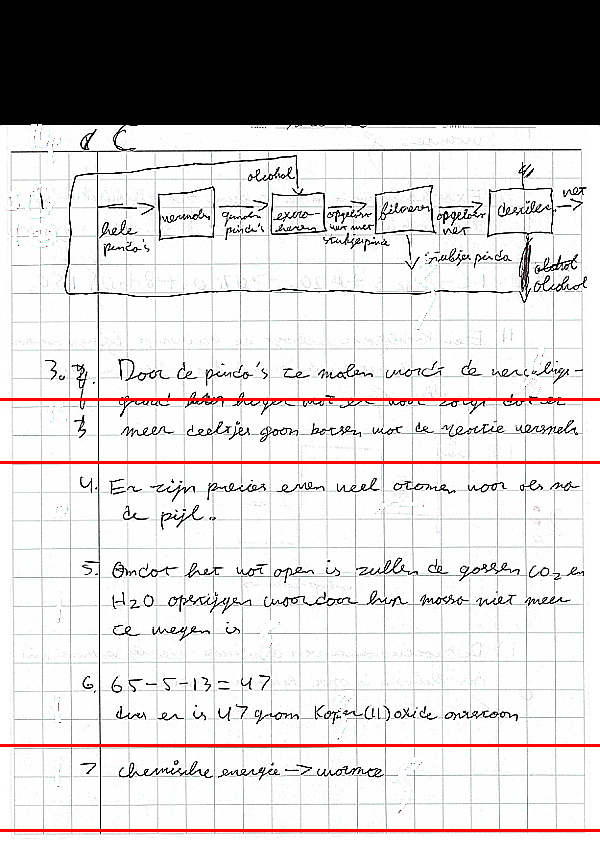 C
1
alcohol
hele pinda's
vermalen
gemalen pinda's
extra-
heren
opgelost
vet met
stukjes pinda
filtreren
opgelost
vet
destilleren
vet
stukjes pinda
alcohol
3. Door de pinda's te malen wordt de verdelings-
graad hoger wat er voor zorgt dat er
meer deeltjes gaan botsen wat de reactie versnelt
4. Er zijn precies even veel atomen voor als na
de pijl.
5. Omdat het vat open is zullen de gassen CO2 en
H2O opstijgen waardoor hun massa niet meer
te wegen is
6. 65-5-13=47
dus er is 47 gram Koper(II)oxide ontstaan
7 chemische energie -> warmte